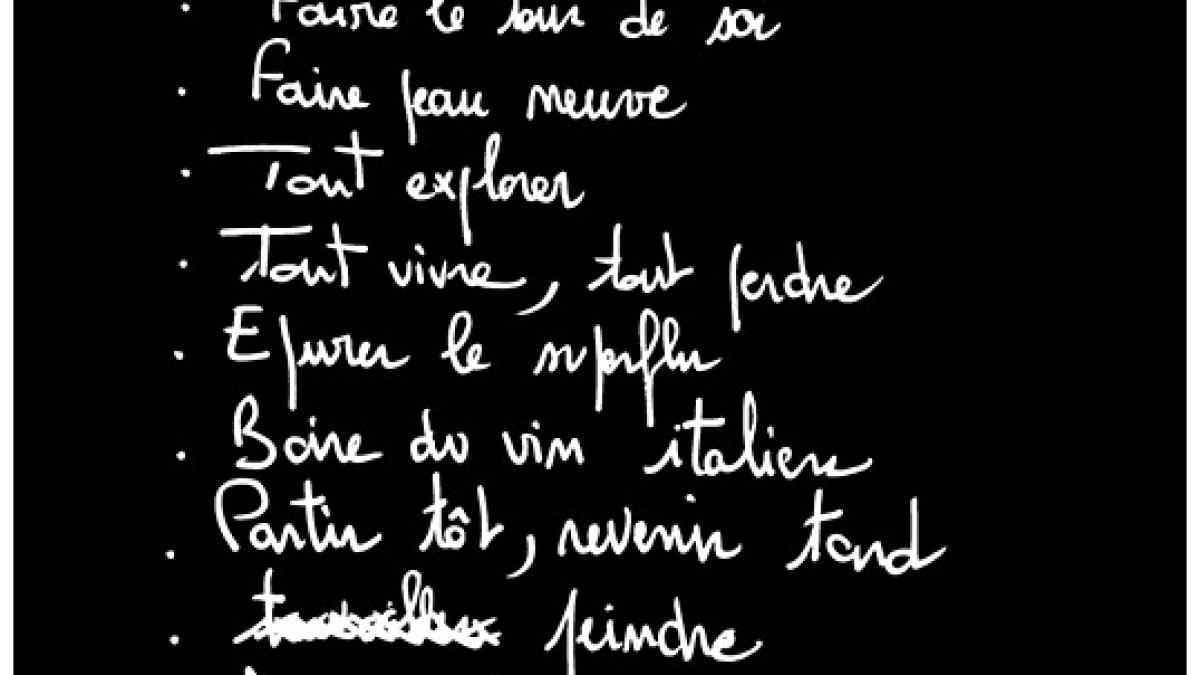 · Faire le tour de soi
· Faire peau neuve
· Tout explorer
· Tout vivre, tout perdre
· Epurer le superflu
· Boire du vin italien
· Partir tôt, revenir tard
· travailler peindre